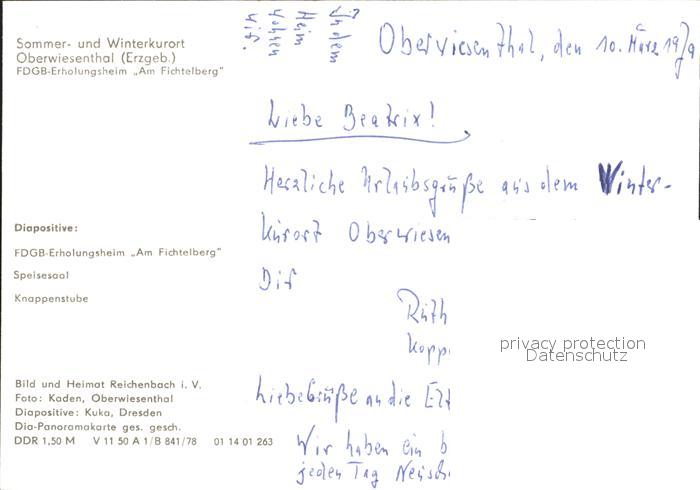 Sommer- und Winterkurort
Oberwiesenthal (Erzgeb.)
FDGB-Erholungsheim „Am Fichtelberg"
In dem
Heim
wohnen
wir.
Oberwiesenthal, den 10. März 1979
Liebe Beatrix!
Herzliche Urlaubsgrüße aus dem Winter-
kurort Oberwiesen
Dir
Ruth
Kopp
Liebe Grüße an die Elt
Wir haben ein b
jeden Tag Neusch
Diapositive:
FDGB-Erholungsheim „Am Fichtelberg"
Speisesaal
Knappenstube
privacy protection
Datenschutz
Bild und Heimat Reichenbach i. V.
Foto: Koden, Oberwiesenthal
Diapositive: Kuka, Dresden
Dia-Panoramakarte ges. gesch.
DDR 1,50 M V 11 50 A 1/B 841/78 01 14 01 263